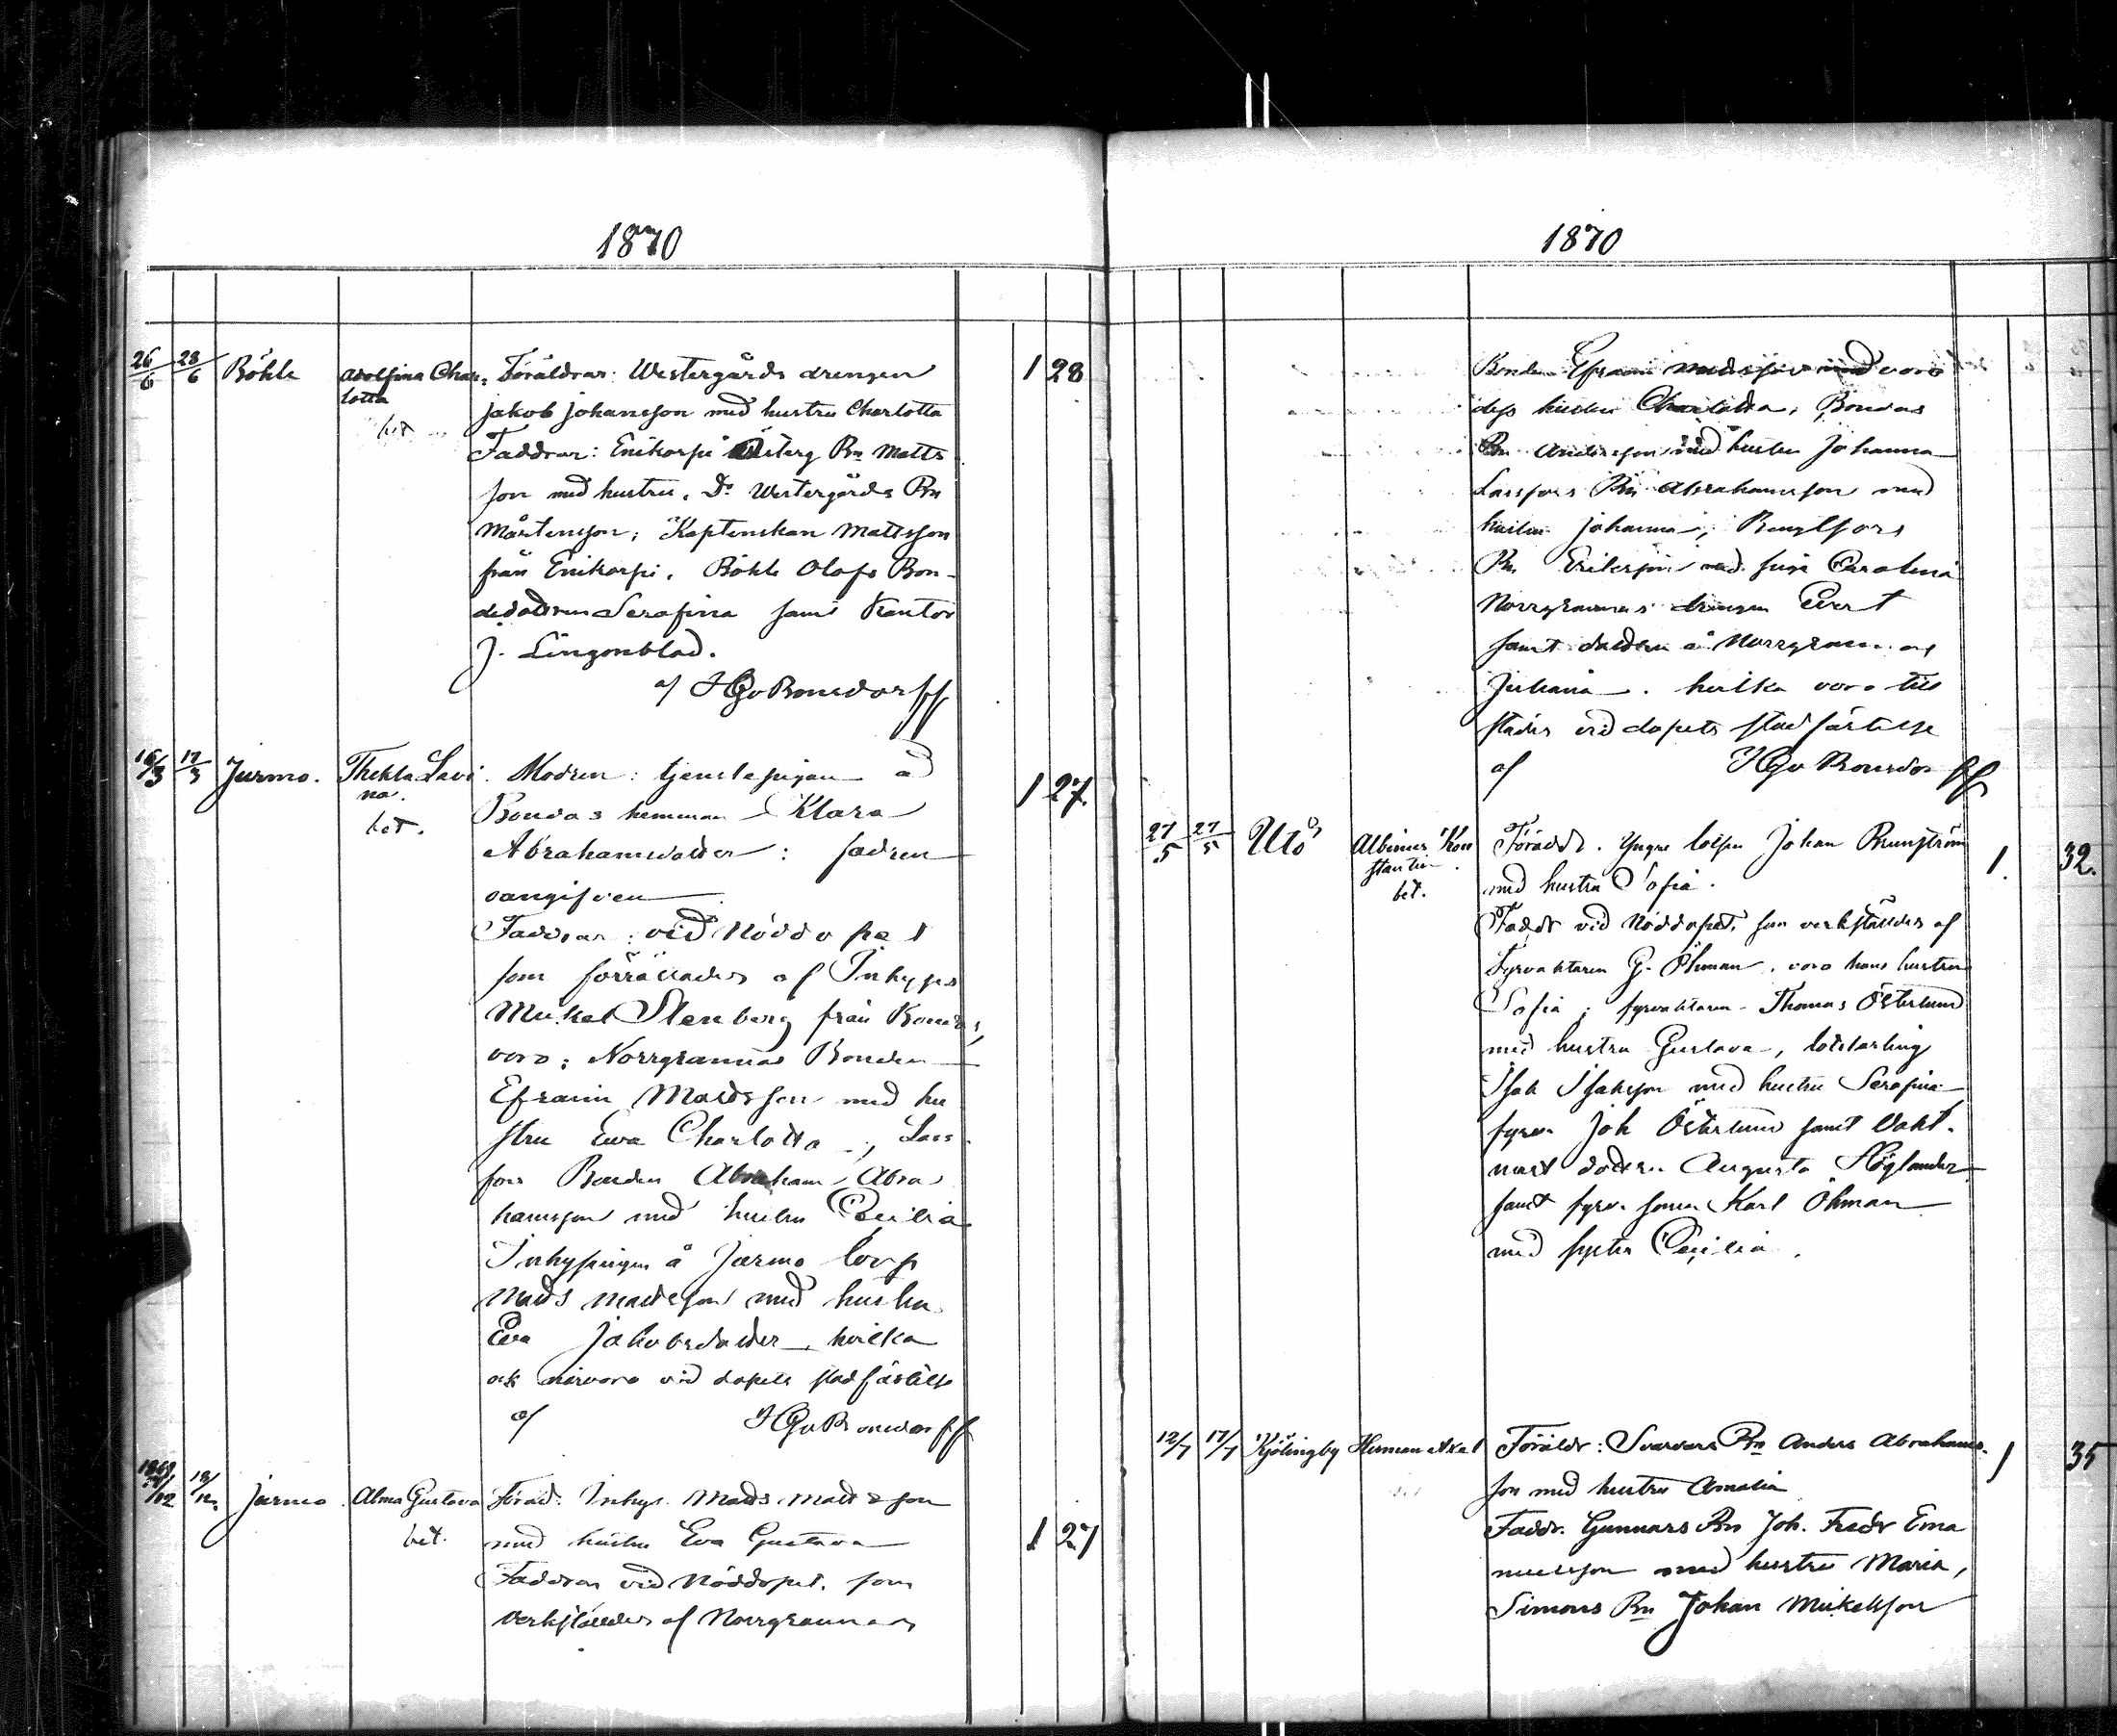 1870
26/6 28/6 Böhle Adolfina Char- Föräldrar: Westergårds drengen 1 28
lotta
Jakob Johansson med hustru Charlotta
bet
Faddrar: Enikorpi Österg Bn Matts
son med hustru. Do Westergårds Bn
Mårtensson; Kaptenskan Mattsson
från Enikorpi. Böhle Olofs Bon-
dedottren Serafina samt Kantor
J. Lingonblad.
af HGvBonsdorff
16/3 17/3 Jurmo. Thekla Lavi Modren: tjenstepigan å 1 27
na.
Bondas hemman Klara
bet.
Abrahamsdotter: fadren
oangifven
Faddrar: vid Nöddopet
som förrättades af Inhyses
Mickel Stenberg från Bondas,
voro: Norrgrannas Bonden
Efraim Mattsson med hu
stru Eva Charlotta; Lass
fors Bonden Abraham Abra
hamsson med hustru Cecilia
Inhysingen å Jurmo torp
Matts Mattsson med hustru
Eva Jakobsdotter, hvilka
ock närvoro vid dopets stadfästelse
af HGvBonsdorff
1869
/12 19/12. Jurmo. Alma Gustava Föräld: Inhys. Matts Mattsson 1 27
bet. med hustru Eva Gustava
Faddrar vid Nöddopet. som
verkställdes af Norrgrannas
1870
Bonden Efraim Mattsson voro
dess hustru Charlotta; Bondas
Bn Andersson med hustru Johanna
Lassfors Bn Abrahamsson med
hustru Johanna; Bengtsfors
Bn Eriksson med piga Carolina
Norrgrannas drengen Evert
samt dottren å Norrgrannas
Juliana. hvilka voro till
städes vid dopets stadfästelse
af HGvBonsdorff
27/5 27/5 Utö Albinus Kon Föräldr. Yngre lotsen Johan Brunström 1. 32.
stantin.
med hustru Sofia.
bet.
Faddr vid Nöddopet, som verkställdes af
Fyrvaktaren G. Öhman, voro hans hustru
Sofia; fyrvaktaren Thomas Österlund
med hustru Gustava, lotslärling
Isak Isaksson med hustru Serafina
fyrv. Joh Österlund samt Vakt.
mast dottr. Augusta Höglander
samt fyrv. sonen Karl Öhman
med syster Cecilia.
12/7 17/7 Kjölingby Herman Axel Föräldr: Svarvars Bn Anders Abrahams- 1 35
son med hustru Amalia
Faddr. Gunnars Bn Joh. Fredr Ema
nuelsson med hustru Maria,
Simons Bn Johan Mickelsson